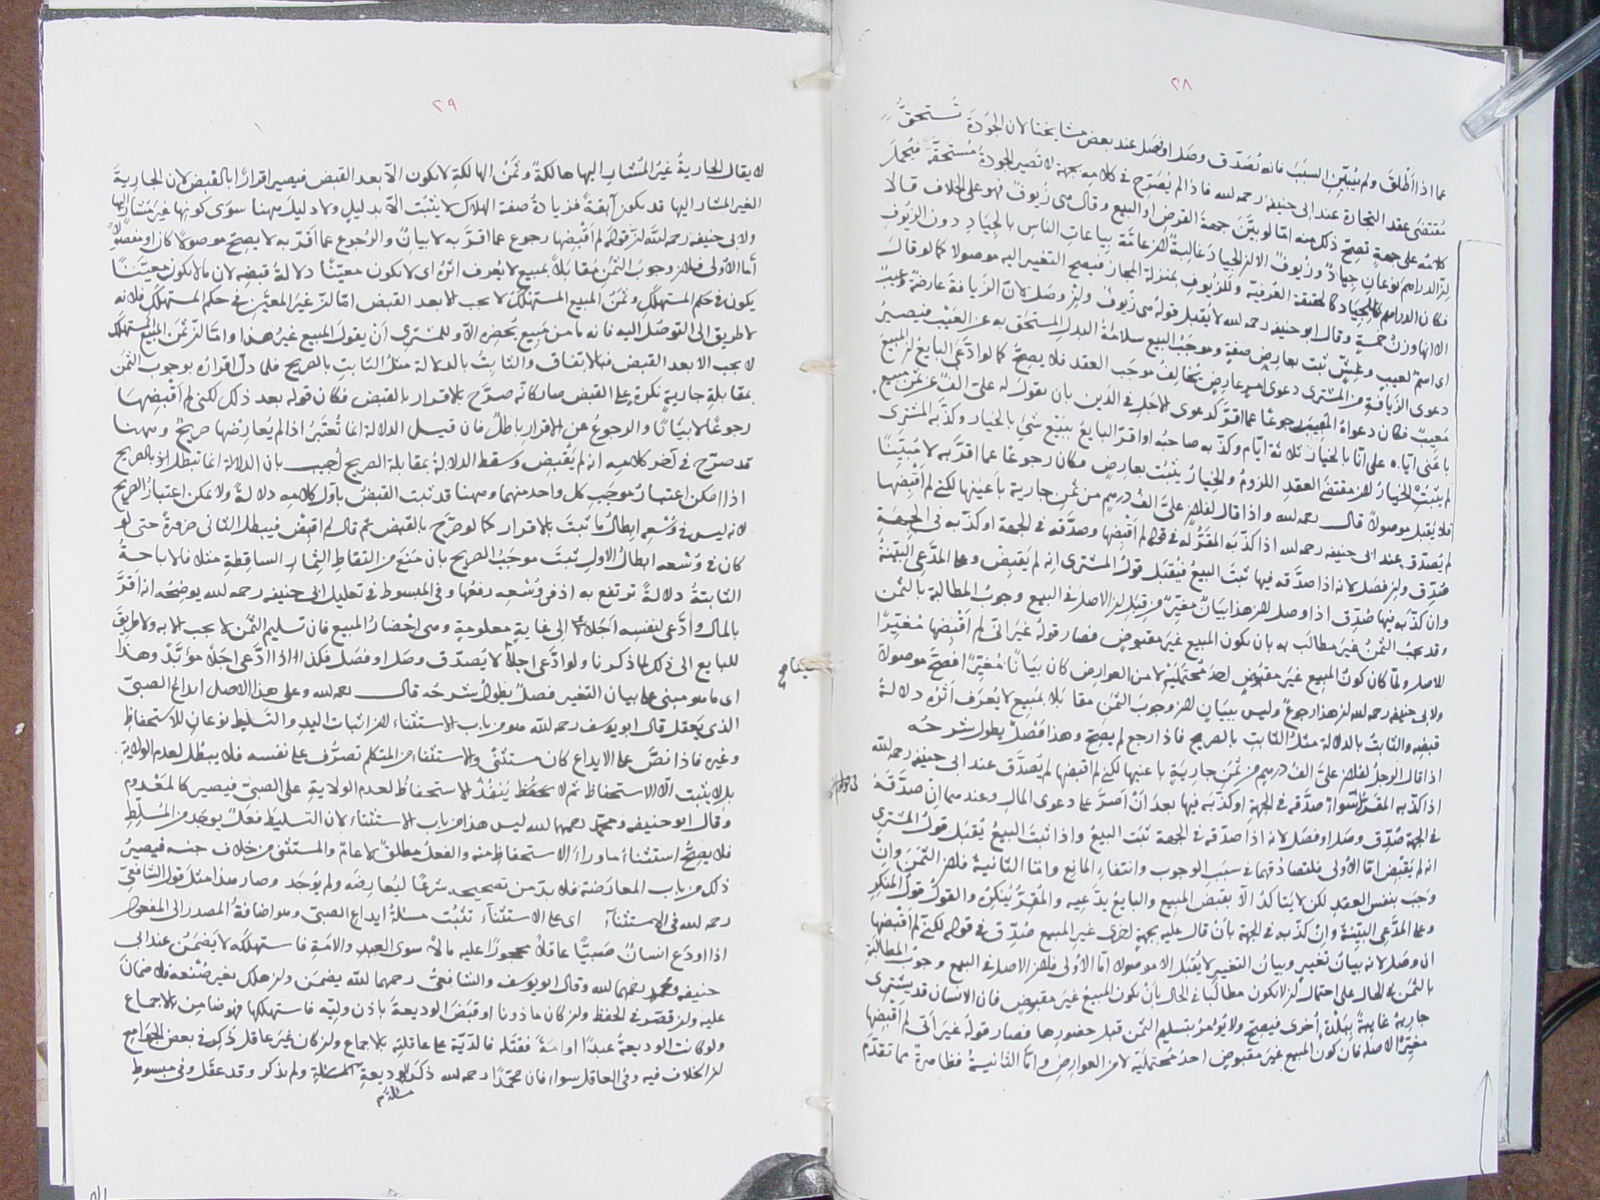 ٢٨
عما اذا اطلق ولم يُبيّن السبب فانه يُصدّق وصل او فصل عند بعض مشايخنا لان الجَودة تُستحقّ
مُقتضى عقد التجارة عند ابى حنيفة رحمه لله فاذا لم يُصرّح فى كلامه بجهة لا تصير الجودة مُستحقّة فيُحمل
كلامه على جهةٍ تصح ذلك منه امّا لو بيّن جهة القرض او البيع وقال هى زيوف فهو على الخلاف قالا
لان الدراهم نوعان جيادٌ وزيوفٌ الا ان الجياد غالبةٌ لان عامّة بياعات الناس بالجياد دون الزيوف
فكان الدراهم للجياد كالحقيقة العُرفيّة وللزيوف بمنزلة المجاز فيصح التغيير اليه موصولا كما لو قال
الا انها وزن خمسةٍ وقال ابو حنيفة رحمه لله لا يُقبل قولُه هى زيوفٌ وان وصل لانّ الزيافة عارضةٌ وعيبٌ
اى اسمٌ لعيبٍ وغِشٍّ ثبت بعارض صفةٍ وموجَبُ البيع سلامةُ البدل المستحق به عن العيب فيصير
دعوى الزيافة من المشترى دعوى امرٍ عارضٍ يُخالف موجَب العقد فلا يصحّ كما لو ادّعى البايعُ ان المبيع
مَعيبٌ فكان دعواهُ العيبَ رجوعًا عما اقرّ كدعوى الاجل فى الدَين بان يقول له علىّ الفٌ عن ثمن مبيع
باعنى ايّاه على انّا بالخيار ثلاثة ايّام وكذّبه صاحبُه او اقرّ البايعُ ببَيْع شئ بالخيار وكذّبه المشترى
لم يثبُتْ الخيارُ لان مقتضى العقد اللزومُ والخيارُ يثبُت بعارضٍ فكان رجوعًا عما اقرّ به لا مُبيّنًا
فلا يُقبل موصولًا قال رحمه لله واذا قال لفلان علىّ الفُ درهمٍ من ثمن جارية باعَنيها لكنّى لم اقبِضها
لم يُصدّق عند ابى حنيفة رحمه لله اذا كذّبه المُقرّ له فى قوله لم اقبِضها وصدّقه فى الجهة او كذّبه فى الجهة
صُدّق وان فصل لانه اذا صدّقه فيها ثبت البيعُ فيُقبل قولُ المشترى انه لم يَقبِض وعلى المدّعى البيّنةُ
وان كذّبه فيها صُدّق اذا وصل لان هذا بيانٌ مغيّرٌ من قِبَل ان الاصل فى البيع وجوبُ المطالبة بالثمن
وقد يجب الثمنُ غير مطالَب به بان يكون المبيع غير مقبوضٍ فصار قولُه غير انى لم اقبِضها مُغيّرًا
للاصل ولمّا كان كونُ المبيع غير مقبوضٍ احدَ مُحتملَيْه لا من العوارض كان بيانًا مُغيّرًا فصحّ موصولا
ولابى حنيفة رحمه لله ان هذا رجوعٌ وليس ببيانٍ لان وجوبَ الثمن مقابَلًا بمبيعٍ لا يُعرف أثَرُه دلالةُ
قبضِه والثابتُ بالدلالة مثلُ الثابت بالصريح فاذا رجع لم يصِحّ وهذا فصلٌ يطولُ شرحُه
اذا قال الرجلُ لفلان علىّ الفُ درهمٍ من ثمن جاريةٍ باعنيها لكنّى لم اقبِضها لم يُصدَّق عند ابى حنيفة رحمه لله
اذا كذّبه المقرّ له سواءٌ صدّقه فى الجهة او كذّبه فيها بعد انْ أصرّ على دعوى المال وعندهما ان صدّقه
فى الجهة صُدّق وصل او فصل لانه اذا صدّقه فى الجهة ثبت البيعُ واذا ثبت البيعُ يُقبل قولُ المشترى
انه لم يَقبِض امّا الأولى فلتصادُقهما فى سبب الوجوب وانتفاء المانع وامّا الثانيةُ فلان الثمنَ وانْ
وجَب بنفس العقد لكن لا يتأكّدُ الا بقبض المبيع والبايعُ يدّعيه والمُقِرُّ يُنكِرُ والقولُ قولُ المُنكِر
وعلى المدّعِى البيّنةُ وانْ كذّبه فى الجهة بأنْ قال عليه بجهةٍ اُخرى غيرِ المبيع صُدّق فى قوله لكنّى لم اقبِضها
ان وصل لانه بيانُ تغييرٍ وبيانُ التغيير لا يُقبل الا موصولا امّا الأولى فلان الاصل فى البيع وجوبُ المطالبةِ
بالثمن فى الحال على احتمال ان لا يكون مطالَبًا فى الحال بأنْ يكون المبيعُ غيرَ مقبوضٍ فان الانسان قد يشترى
جاريةً غايبةً ببلدةٍ أخرى فيصحّ ولا يُؤمرُ بتسليم الثمن قبل حضورِها فصار قولُه غير انّى لم اقبِضها
مغيّرًا للاصل فان كون المبيع غير مقبوضٍ احدُ مُحتملَيْه لا من العوارض وامّا الثانيةُ فظاهرةٌ مما تقدّم
٢٩
لا يقال الجاريةُ غيرُ المُشار اليها هالكةٌ وثمَنُ الهالكةِ لا يكون الا بعد القبض فيصير اقرارًا بالقبض لان الجاريةَ
الغيرَ المشار اليها قد يكون آبقةً فزيادةُ صفة الهلاك لا يثبُت الا بدليلٍ ولا دليلَ ههنا سوَى كونِها غيرَ مُشارٍ اليها
ولابى حنيفة رحمه للّه ان قولَه لم أقبِضها رجوع عما اقرّ به لا بيانٌ والرجوع عما اقرّ به لا يصحّ موصولًا كان او مفصولًا
أما الأولى فلان وجوبَ الثمن مُقابَلًا بمبيع لا يُعرف اثرُه اى لا يكون معيّنًا دلالةُ قبضِه لان ما لا يكون معيّنًا
يكون فى حكم المستهلك وثمَنُ المبيع المستهلَك لا يجب الا بعد القبض امّا انّ غيرَ المعيّن فى حكم المستهلَك فلانه
لا طريق الى التوصّل اليه فانه ما من مَبيعٍ يُحضِره الا وللمشترى أنْ يقول المبيع غيرُ هذا وامّا انّ ثمَن المبيع المستهلَك
لا يجب الا بعد القبض فبالاتفاق والثابتُ بالدلالة مثلُ الثابت بالصريح فلما دلّ اقرارُه بوجوب الثمَن
بمقابلة جاريةٍ نكرةٍ على القبض صار كأنّه صرّح بالاقرار بالقبض فكان قوله بعد ذلك لكنى لم اقْبِضها
رجوعًا لا بيَانًا والرجوعُ عن الاقرار باطلٌ فان قيل الدلالة انما تُعتبَرُ اذا لم يُعارِضها صريحٌ وههنا
قد صرّح فى آخر كلامِه انه لم يَقبض وسقط الدلالةُ بمقابلة الصريح أجيب بان الدلالة انما تبطل بالصريح
اذا امكن اعتبارُ موجَب كل واحد منهما وههنا قد ثبت القبضُ باوّل كلامِه دلالةً ولا يمكن اعتبارُ الصريح
لانه ليس فى وُسْعِه ابطالُ ما ثبت بالاقرار كما لو صرّح بالقبض ثم قال لم اقبِض فيبطل الثانى ضرورةً حتى لو
كان فى وُسْعه ابطالُ الاول يَثبُت موجَبُ الصريح بان مَنَع من التقاط الثمار الساقطةِ مثلا فالاباحةُ
الثابتةُ دلالةً ترتفع به اذ فى وُسْعِه رفعُها وفى المبسوط فى تعليل ابى حنيفة رحمه لله يوضِحُه انه اقرَّ
بالمال وادّعى لنفسه اجَلًا الى غايةٍ معلومةٍ وهى احضارُ المبيع فان تسليم الثمن لا يجب الا به ولا طريقَ
للبايع الى ذلك لما ذكرنا ولو ادّعى اجلًا لا يُصدّق وصل او فصل فكذا اذا ادّعى اجلًا مؤبّدًا وهذا
اى ما هو مبنى على بيان التغيير فصلٌ يطولُ شرحُه قال رحمه لله وعلى هذا الاصل ايداعُ الصبىّ
الذى يَعقل قال ابو يوسف رحمه للّه هو من باب الاستثناء لان اثبات اليد والتسليط نوعان للاستحفاظ
وغيره فاذا نصَّ على الايداع كان مستثنًى والاستثناء من المتكلّم تصرُّف على نفسه فلا يبطُل لعدم الولاية
بل لا يثبت الا الاستحفاظ ثم لا يَنفُذُ الاستحفاظُ لعدم الولايةِ على الصبىّ فيصير كالمعْدوم
وقال ابو حنيفة ومحمّد رحمهما لله ليس هذا من باب الاستثناء لان التسليط فعلٌ يوجَد من المُسلِّط
فلا يصِحُّ استثناءُ ما وراءَ الاستحفاظ منه والفعلُ مطلقٌ لا عامٌّ والمستثنى من خلاف جنسِه فيصيرُ
ذلك من باب المعارَضة فلا بدّ من تصحيحه شرعًا ليُعارضَه ولم يُوجَد وصار هذا مثلَ قول الشافعىّ
رحمه لله فى الاستثناء اى على الاستثناء تثبُت مسئلةُ ايداع الصبىّ وهو اضافةُ المصدر الى المفعول
اذا اودَع انسانٌ صَبيًّا عاقلًا محجورًا عليه مالًا سوى العبد والامةِ فاستهلكه لا يَضمنُ عند ابى
حنيفة ومحمد رحمهما لله وقال ابو يوسف والشافعىُّ رحمهما للّه يضمَن وان هلك بغير صُنْعه فلا ضمانَ
عليه وان قصّر فى الحفظ وان كان ماذونا او قبَض الوديعةَ باذن وليّه فاستهلكها فهو ضامن بالاجماع
ولو كانت الوديعةُ عبدًا او امَةً فقتله فالديّةُ على عاقلتِه بالاجماع وان كان غيرَ عاقل ذُكر فى بعض الجوامع
ان الخلاف فيه وفى العاقل سواء فان محمّدًا رحمه لله ذكَر الوديعةَ ولم يذكر وقد عقل وفى مبسوط